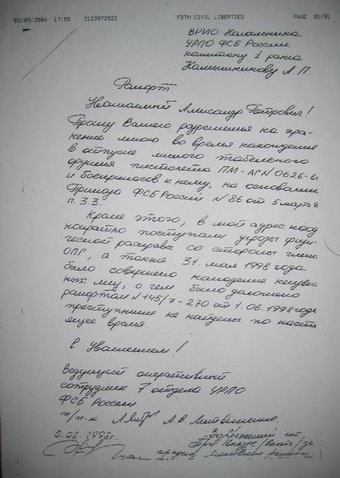 02/09/2004 17:55 2123972922 FDTN CIVIL LIBERTIES PAGE 01/01
ВРИО Начальника
УРПО ФСБ России
капитану 1 ранга
Камышникову А.П.
Рапорт
Уважаемый Александр Петрович!
Прошу Вашего разрешения на хра-
нение мною во время нахождения
в отпуске личного табельного
оружия пистолета ПМ-АГN 0626-61
и боеприпасов к нему, на основании
Приказа ФСБ России N 86 от 5 марта
п. 3.3.
Кроме этого, в мой адрес неод
нократно поступали угрозы физи-
ческой расправы со стороны члено
ОПГ, а также 31 мая 1998 года
было совершено нападение неизвес
ных лиц, о чем было доложено
рапортом N 145/7-270 от 1.06.1998 года
преступники не найдены по насто
ящее время
С Уважением!
Ведущий оперативный
сотрудник 7 отдела УРПО
ФСБ России
п/п-к А.В. Литвиненко